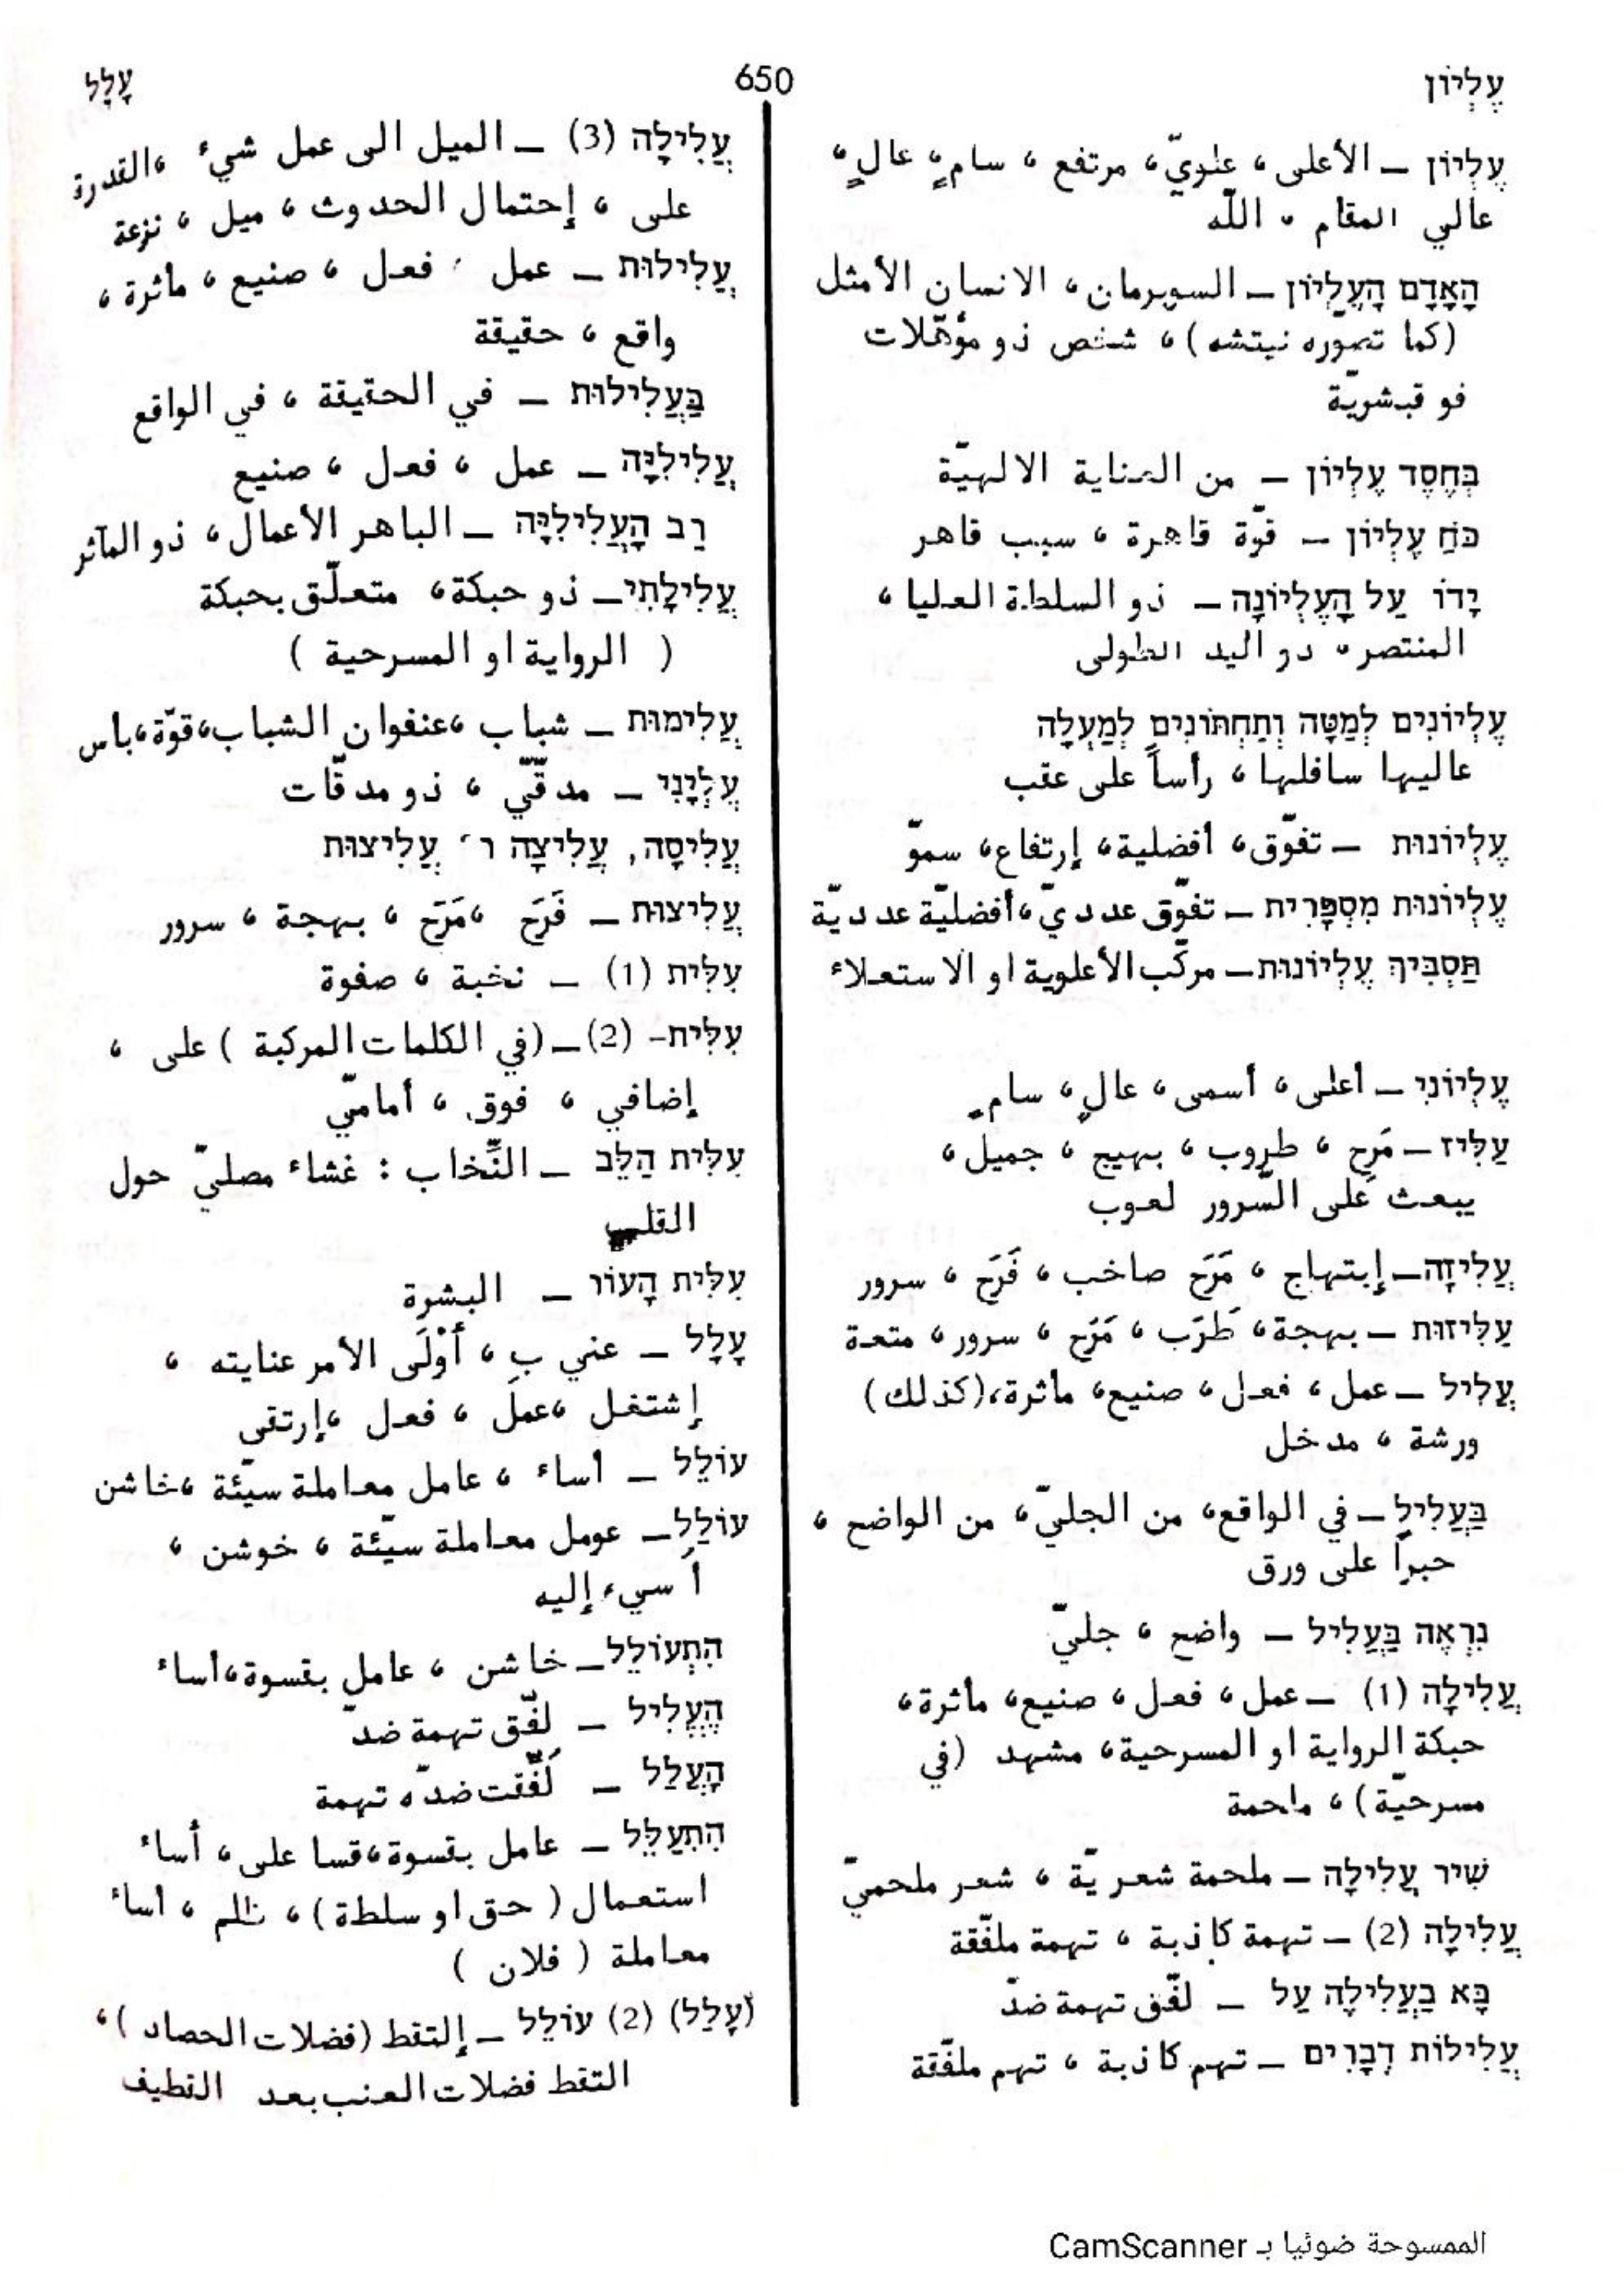 עֶלְיוֹן
650
עָלַל
עֶלְיוֹן – الأعلى ، علويّ ، مرتفع ، سامٍ ، عالٍ ،
عالي المقام ، اللّه
הָאָדָם הָעֶלְיוֹן – السوبرمان ، الانسان الأمثل
(كما تصوّره نيتشه) ، شخص ذو مؤهّلات
فوقبشريّة
בְּחֶסֶד עֶלְיוֹן – من العناية الالهيّة
כֹּחַ עֶלְיוֹן – قوّة قاهرة ، سبب قاهر
יָדוֹ עַל הָעֶלְיוֹנָה – ذو السلطة العليا ،
المنتصر ، ذو اليد الطولى
עֶלְיוֹנִים לְמַטָּה וְתַחְתּוֹנִים לְמַעְלָה
عاليها سافلها ، رأساً على عقب
עֶלְיוֹנוּת – تفوّق ، أفضلية ، إرتفاع ، سموّ
עֶלְיוֹנוּת מִסְפָּרִית – تفوّق عدديّ ، أفضليّة عدديّة
תַּסְבִּיךְ עֶלְיוֹנוּת – مركّب الأعلوية او الاستعلاء
עֶלְיוֹנִי – أعلى ، أسمى ، عالٍ ، سامٍ
עַלִּיז – مَرِح ، طروب ، بهيج ، جميل ،
يبعث على السّرور لعوب
עֲלִיזָה – إبتهاج ، مَرَح صاخب ، فَرَح ، سرور
עַלִּיזוּת – بهجة ، طَرَب ، مَرَح ، سرور ، متعة
עֲלִיל – عمل ، فعل ، صنيع ، مأثرة ، (كذلك)
ورشة ، مدخل
בַּעֲלִיל – في الواقع ، من الجليّ ، من الواضح ،
حبراً على ورق
נִרְאֶה בַּעֲלִיל – واضح ، جليّ
עֲלִילָה (1) – عمل ، فعل ، صنيع ، مأثرة ،
حبكة الرواية او المسرحية ، مشهد (في
مسرحيّة) ، ملحمة
שִׁיר עֲלִילָה – ملحمة شعريّة ، شعر ملحميّ
עֲלִילָה (2) – تهمة كاذبة ، تهمة ملفّقة
בָּא בַּעֲלִילָה עַל – لفّق تهمة ضدّ
עֲלִילוֹת דְּבָרִים – تهم كاذبة ، تهم ملفّقة
עֲלִילָה (3) – الميل الى عمل شيء ، القدرة
على ، إحتمال الحدوث ، ميل ، نزعة
עֲלִילוּת – عمل ، فعل ، صنيع ، مأثرة ،
واقع ، حقيقة
בַּעֲלִילוּת – في الحقيقة ، في الواقع
עֲלִילִיָּה – عمل ، فعل ، صنيع
רַב הָעֲלִילִיָּה – الباهر الأعمال ، ذو المآثر
עֲלִילָתִי – ذو حبكة ، متعلّق بحبكة
( الرواية او المسرحية )
עֲלִימוּת – شباب ، عنفوان الشباب ، قوّة ، باس
עֱלְיָנִי – مدقّيّ ، ذو مدقّات
עֲלִיסָה, עֲלִיצָה ר׳ עֲלִיצוּת
עֲלִיצוּת – فَرَح ، مَرَح ، بهجة ، سرور
עִלִּית (1) – نخبة ، صفوة
עִלִּית- (2) – (في الكلمات المركبة) على ،
إضافي ، فوق ، أماميّ
עִלִּית הַלֵּב – النِّخاب : غشاء مصليّ حول
القلب
עִלִּית הָעוֹר – البشرة
עָלַל – عني بِ ، أَوْلَى الأمر عنايته ،
إشتغل ، عمل ، فعل ، إرتقى
עוֹלֵל – أساء ، عامل معاملة سيّئة ، خاشن
עוֹלַל – عومل معاملة سيّئة ، خوشن ،
أسيء إليه
הִתְעוֹלֵל – خاشن ، عامل بقسوة ، أساء
הֶעֱלִיל – لفّق تهمة ضدّ
הָעֳלַל – لُفّقت ضدّه تهمة
הִתְעַלֵּל – عامل بقسوة ، قسا على ، أساء
استعمال ( حق او سلطة ) ، ظلم ، أساء
معاملة ( فلان )
(עָלַל) (2) עוֹלֵל – إلتقط (فضلات الحصاد) ،
التقط فضلات العنب بعد القطيف
الممسوحة ضوئيا بـ CamScanner